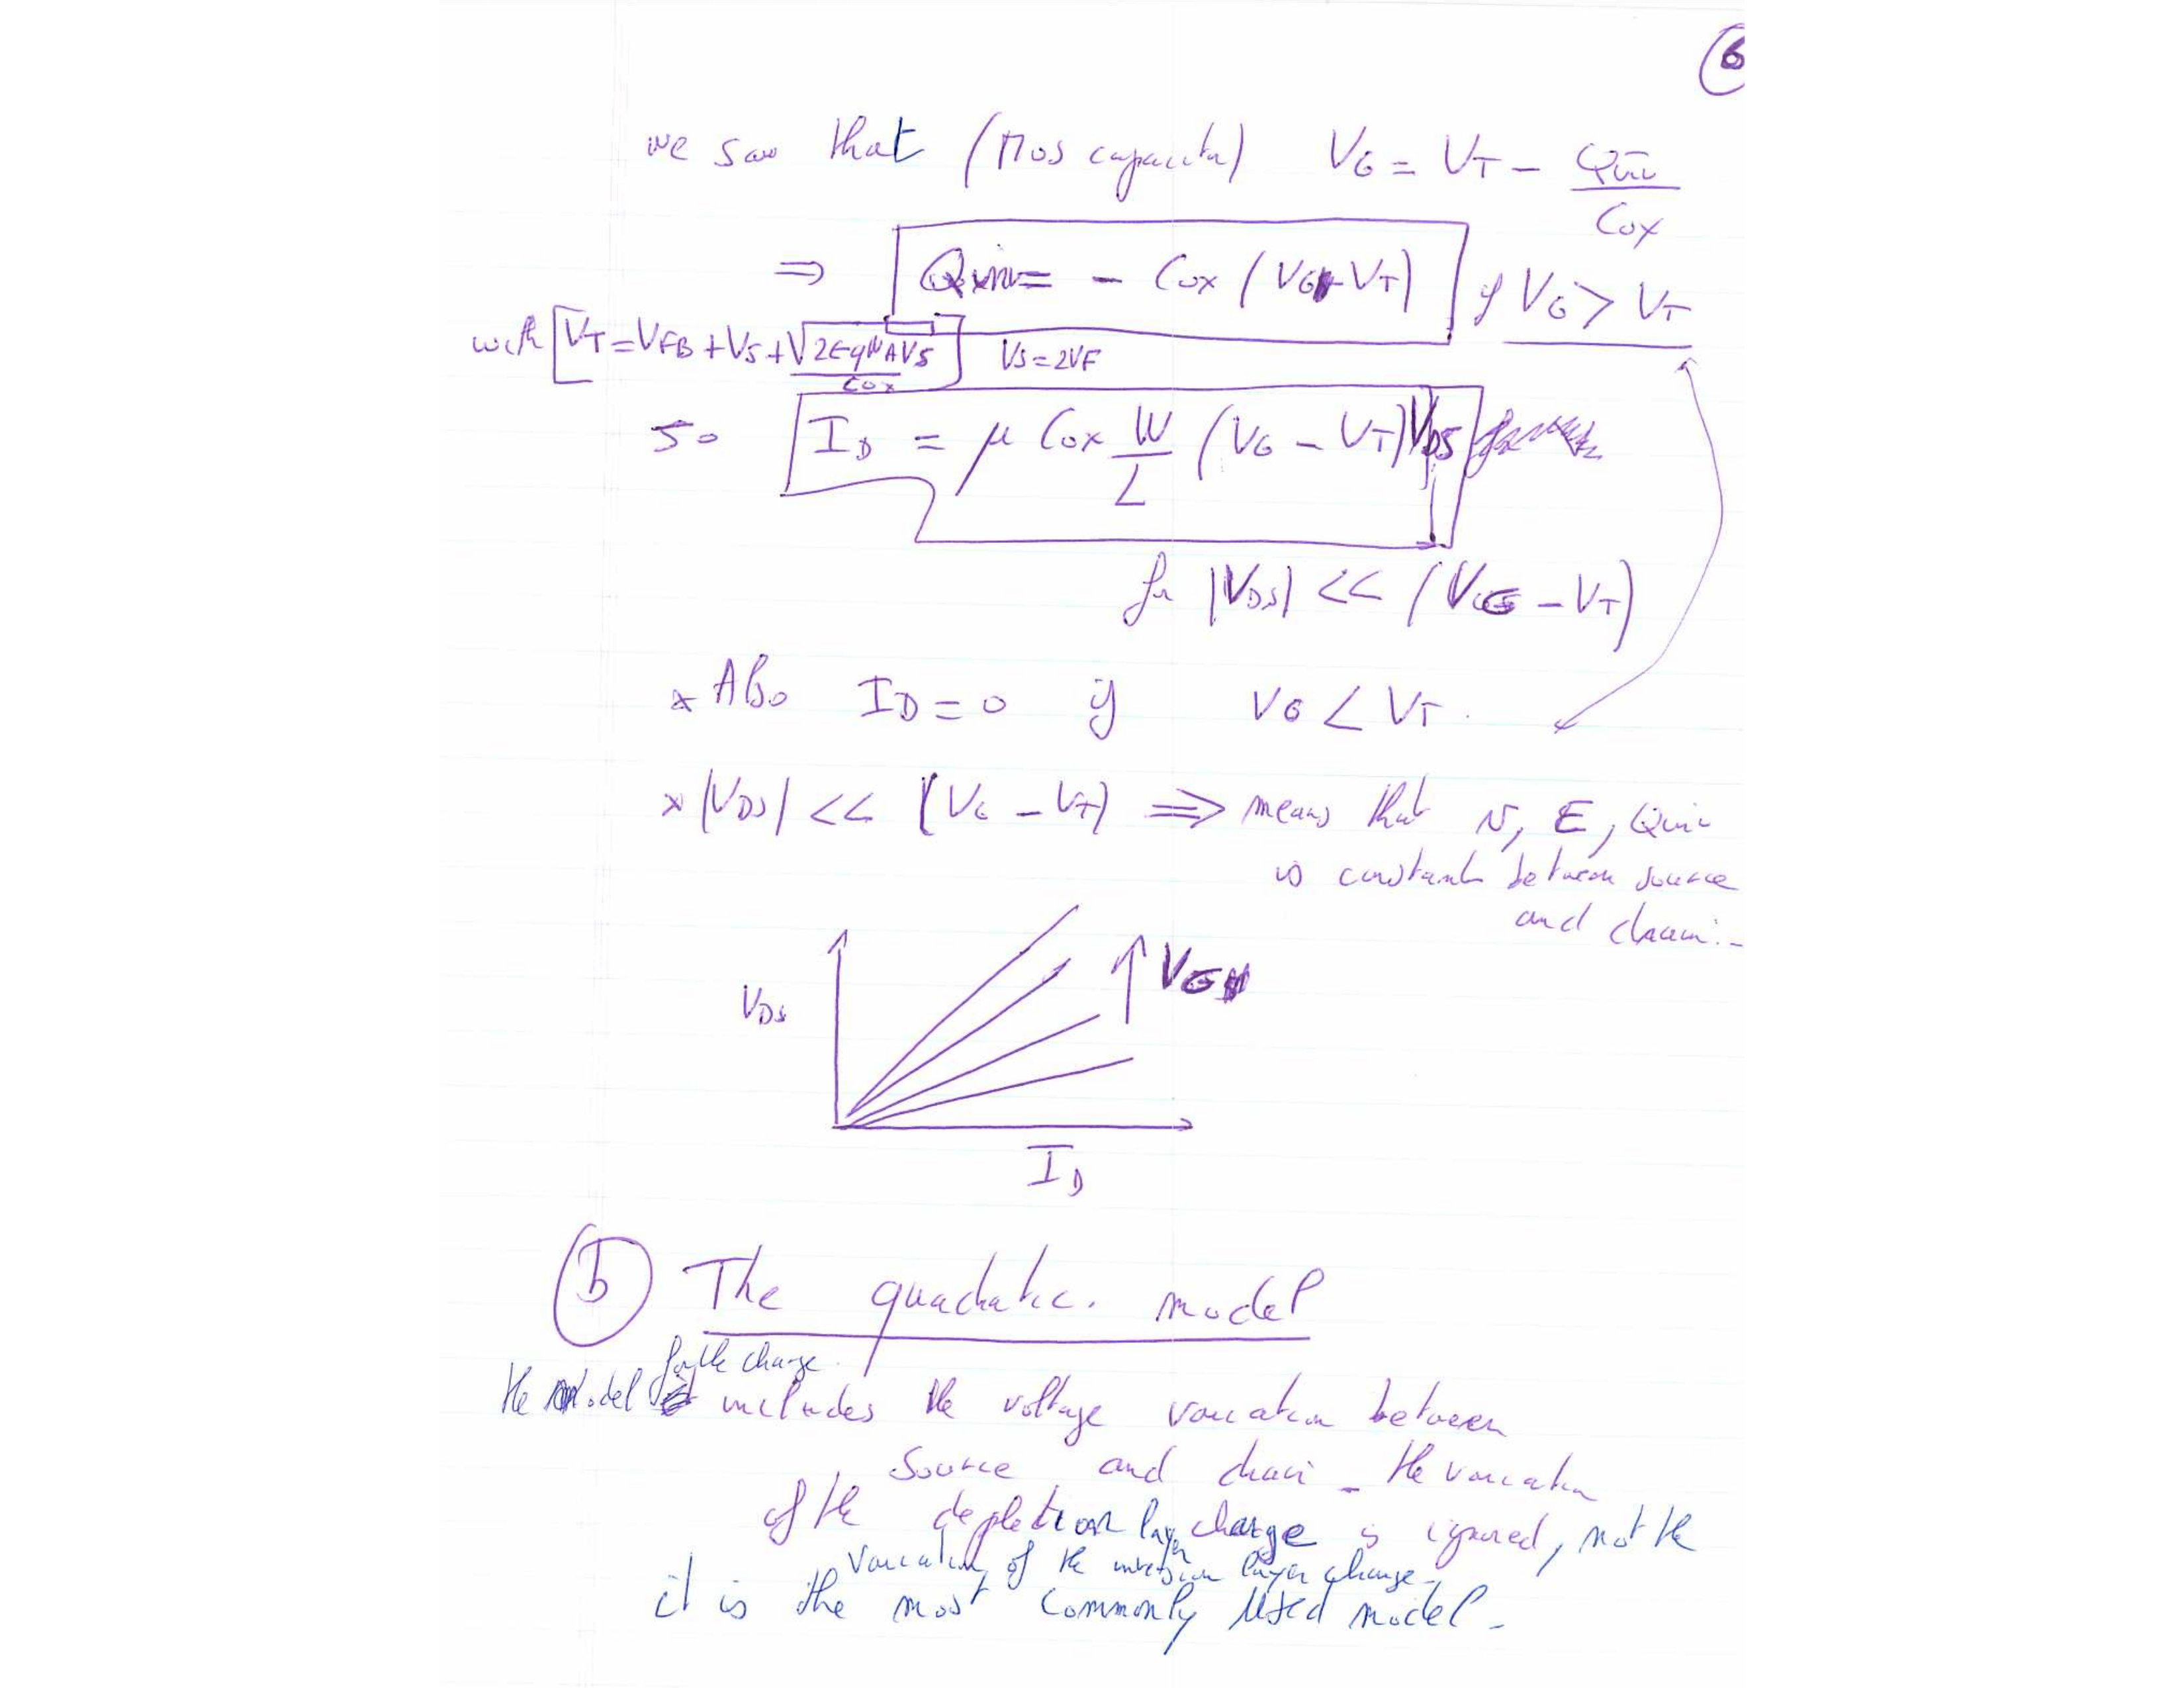 6
we saw that (MOS capacitor) VG = VT - Qinv/Cox
⇒ Qinv = - Cox (VG - VT) if VG > VT
with [VT = VFB + VS + √(2εqNAVS)/Cox] VS = 2VF
so ID = μ Cox W/L (VG - VT) VDS
for |VDS| << (VG - VT)
* Also ID = 0 if VG < VT.
* |VDS| << (VG - VT) ⇒ means that v, E, Qinv
is constant between source
and drain.-
VDS
↑ VG
ID
(b) The quadratic model
for the charge
the model includes the voltage variation between
source and drain - the variation
of the depletion layer charge is ignored, not the
variation of the inversion layer charge -
it is the most commonly used model -